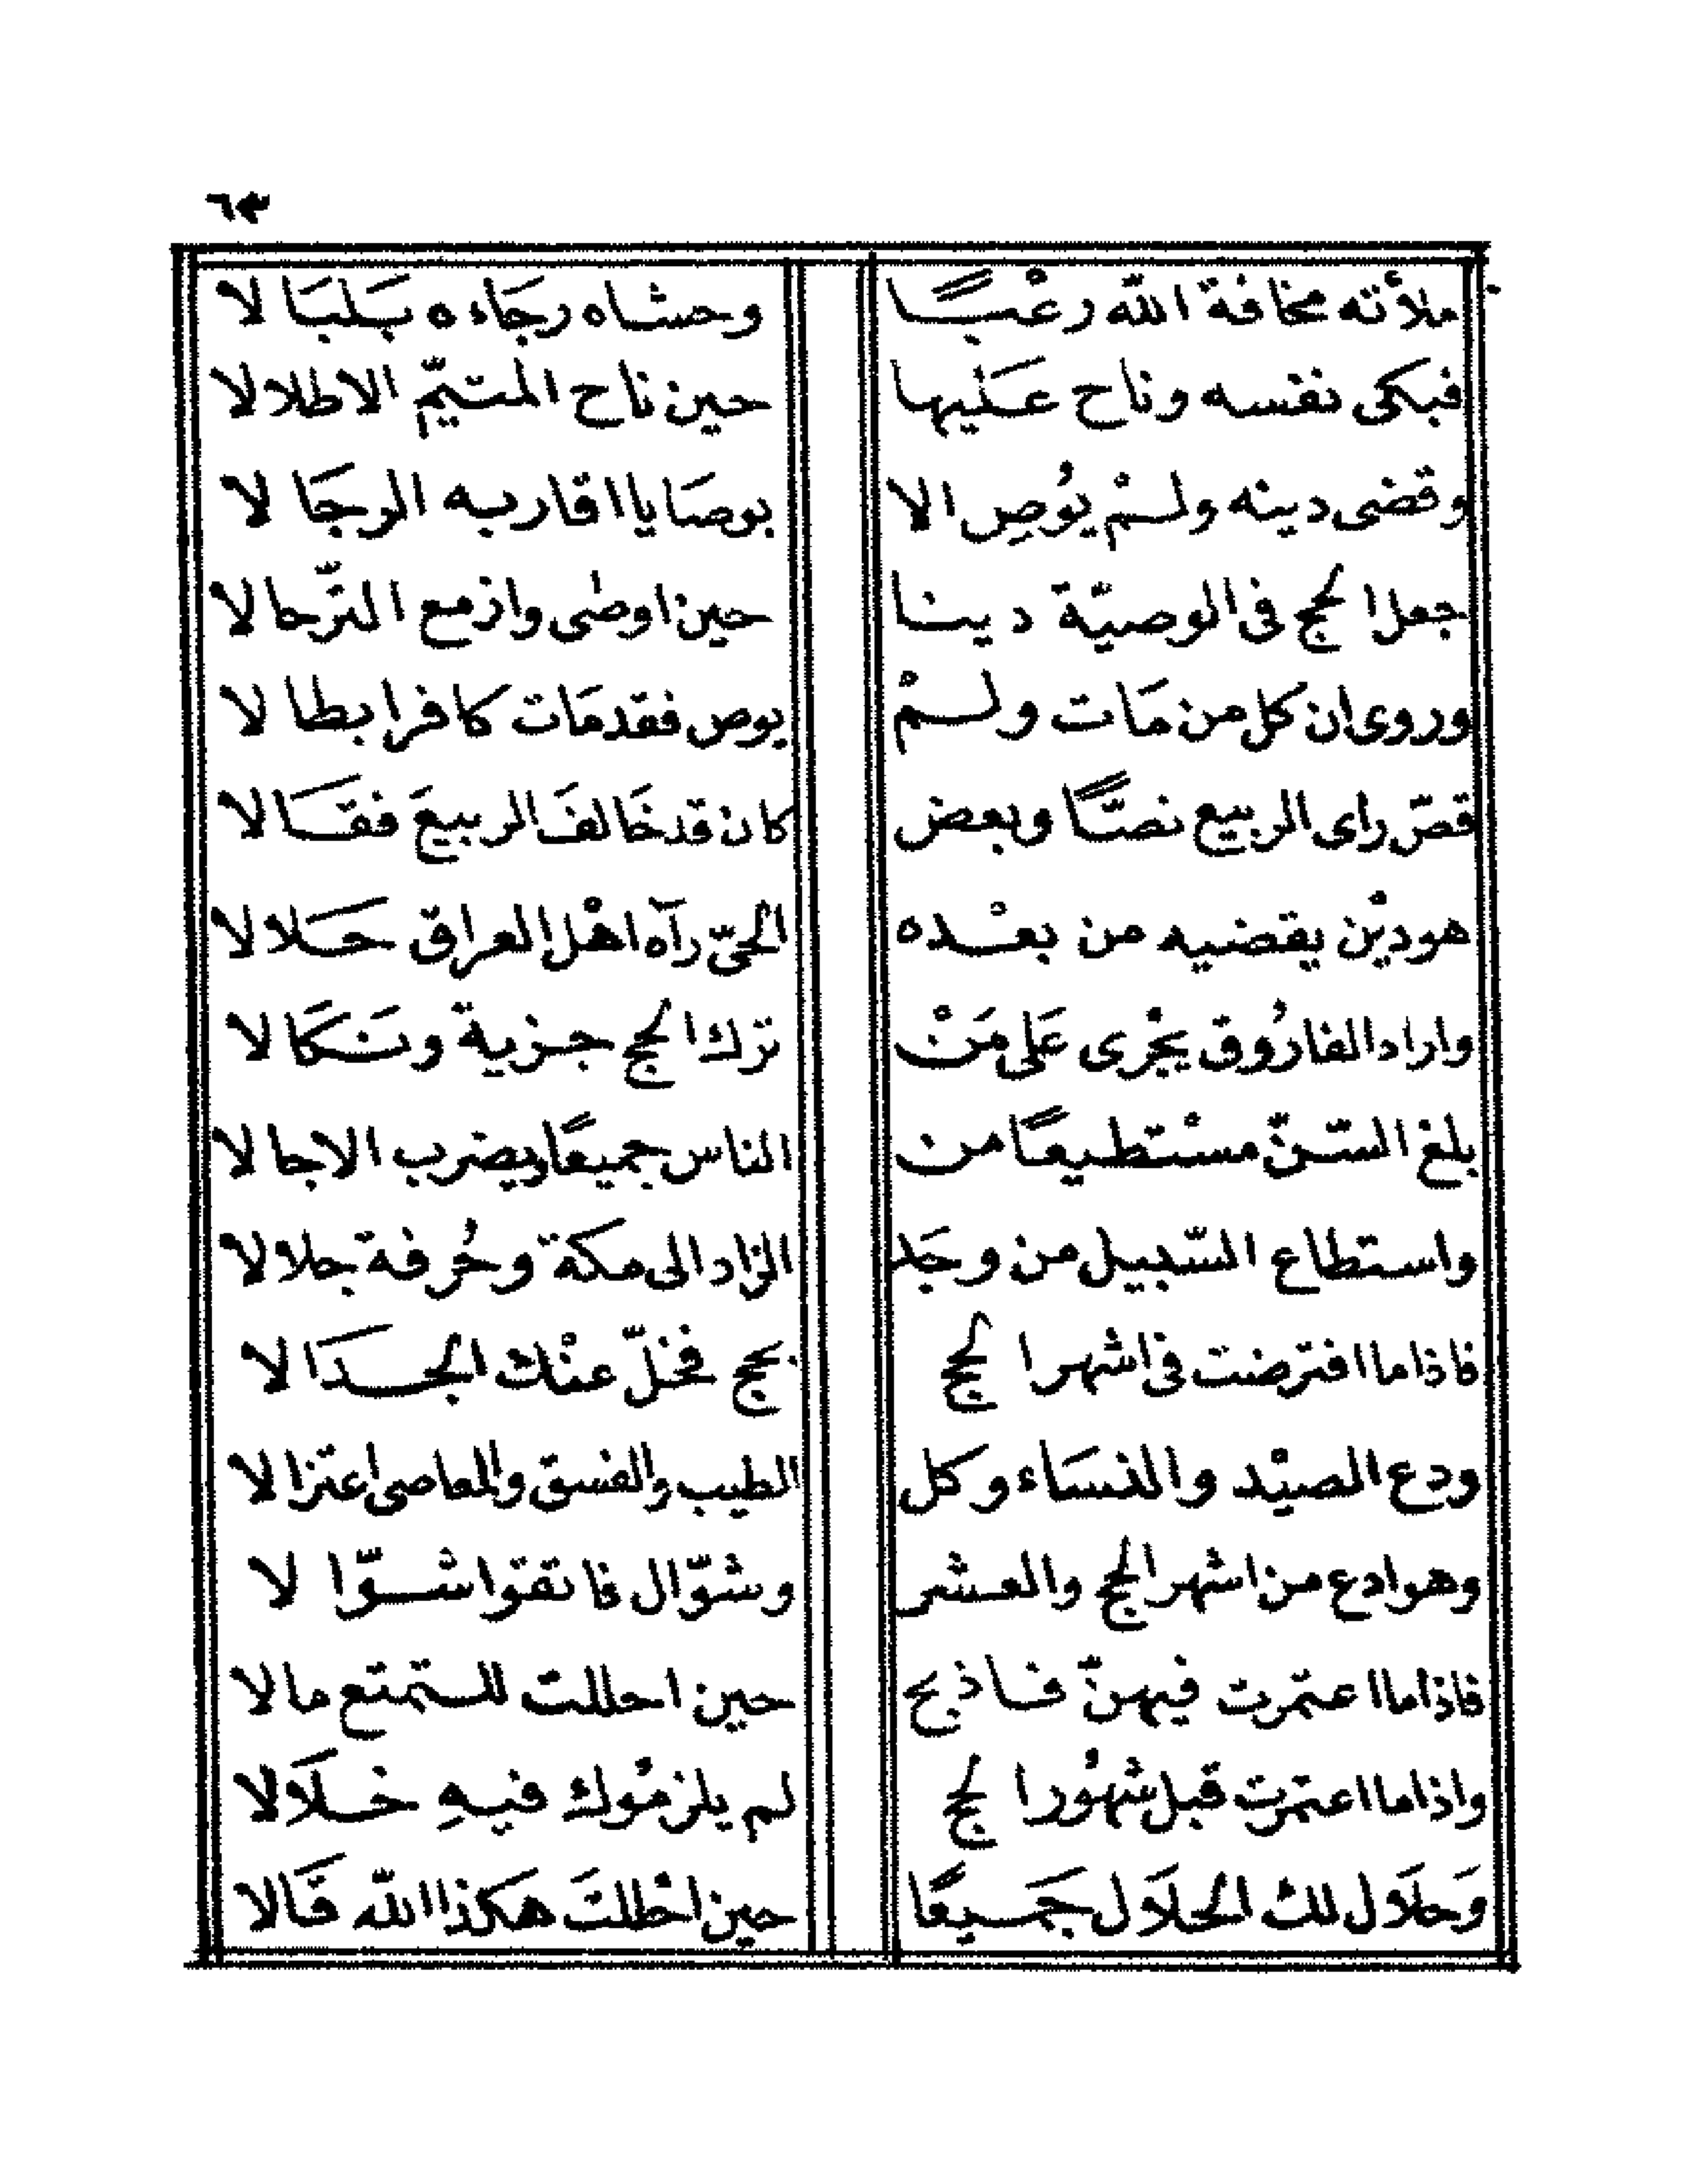 ٦٣
ملأته مخافة الله رعْبًا وحشاه رجَاءه بَلبَالا
فبكى نفسه وناح عَليها حين ناح المتيّم الاطلالا
وقضى دينه ولمْ يُوصِ الا بوصَايا اقاربه الرجَالا
جعل الحج فى الوصيّة دينا حين اوصى وازمع التّرحالا
وروى ان كل من مَات ولمْ يوص فقد مَات كافرا بطالا
قصّ راى الربيع نصًّا وبعض كان قد خَالفَ الربيعَ فقَالا
هو ديْن يقضيه من بعْده الحىّ رآه اهْل العراق حَلالا
واراد الفارُوق يجْرى عَلى مَنْ ترك الحج جزية ونَكَالا
بلغ السّنّ مسْتطيعًا من الناس جميعًا ويضرب الاجالا
واستطاع السّبيل من وجَد الزاد الى مكة وحُرفة جلالا
فاذا ما افترضت فى اشهر الحج بحج فخلّ عنْك الجدَالا
ودع الصيْد والنسَاء وكل الطيب والفسق والمعاصى اعتزالا
وهو ادع من اشهر الحج والعشر وشوّال فاتقوا شوّالا
فاذا ما اعتمرت فيهنّ فاذبح حين احللت للتمتع مالا
واذا ما اعتمرت قبل شهُور الحج لم يلزمُوك فيهِ خلَالا
وَحلَال لك الحلَال جَميعًا حين احْللتَ هكذا الله قَالا